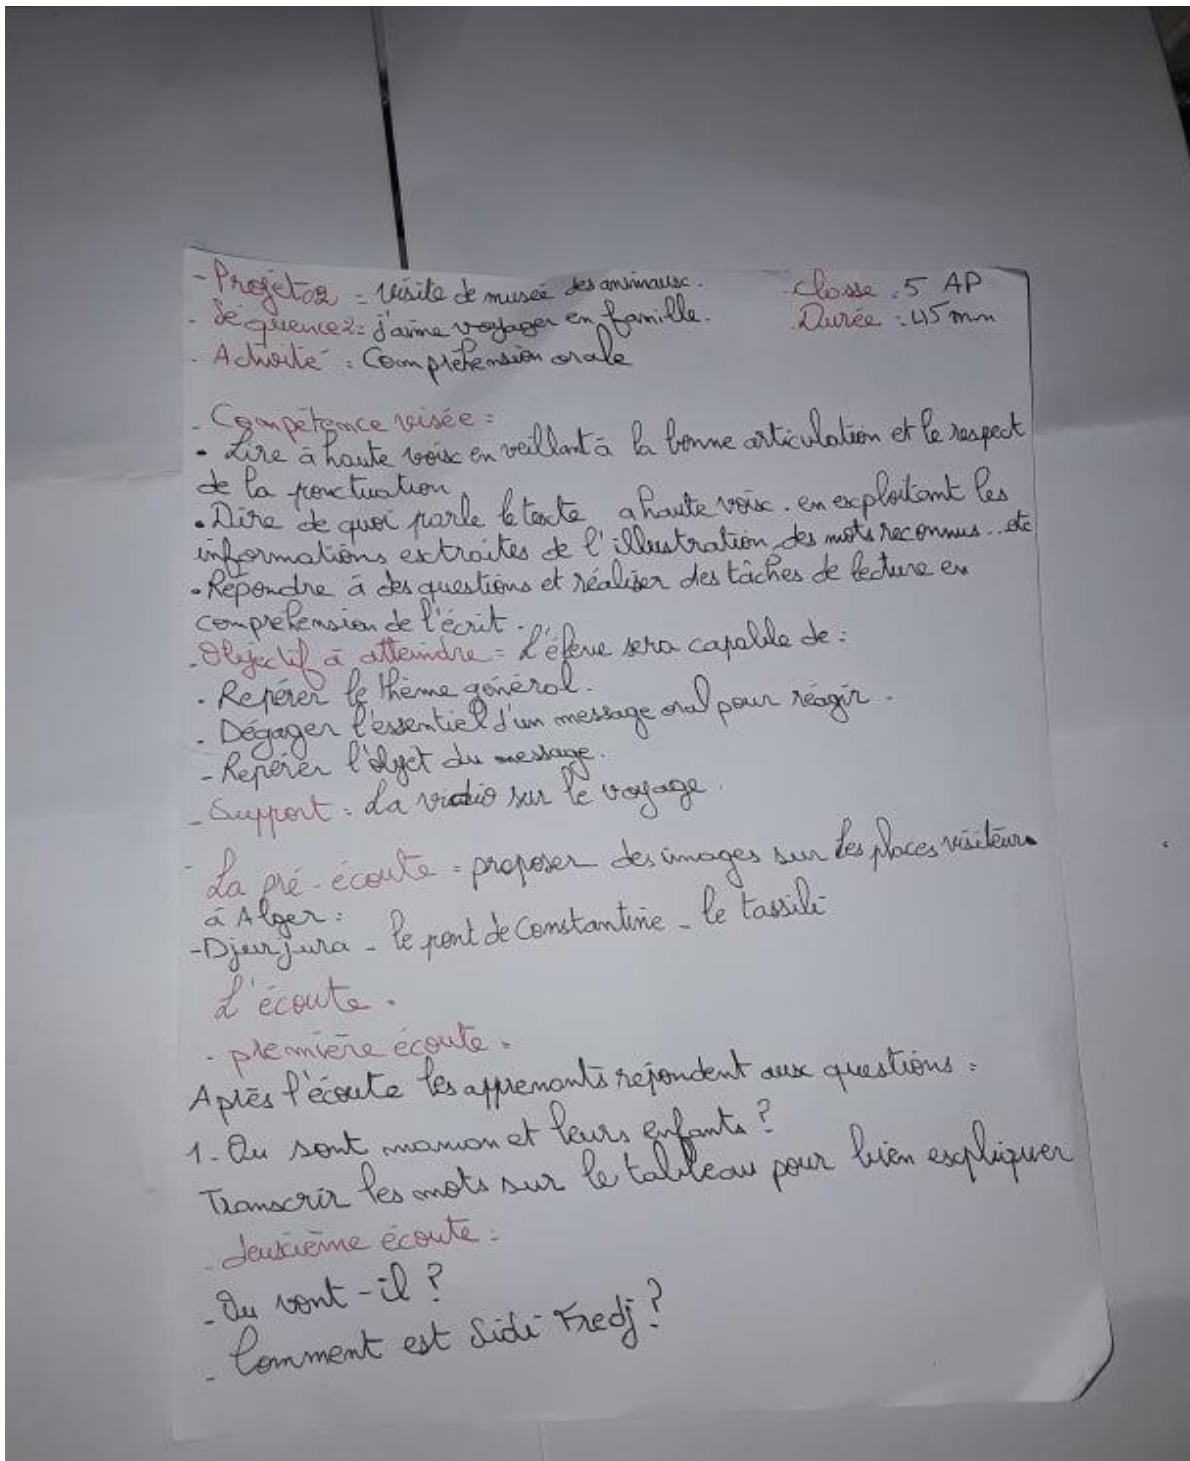 - Projet 02 = visite de museé des animaux.
Classe : 5 AP
- Séquence 2 = j'aime voyager en famille.
Durée : 45 mn
- Activité : Compréhension orale
- Compétence visée =
• Lire à haute voix en veillant à la bonne articulation et le respect
de la ponctuation
• Dire de quoi parle le texte a haute voix. en exploitant les
informations extraites de l'illustration, des mots reconnus...etc
• Répondre à des questions et réaliser des tâches de lecture en
comprehension de l'écrit.
- Objectif à atteindre = L'éleve sera capable de :
- Repérer le thème général.
- Dégager l'essentiel d'un message oral pour réagir.
- Repérer l'objet du message.
- Support : La vidio sur le voyage.
- La pré-écoute = proposer des images sur les places visiteurs
à Alger :
- Djurjura - le pont de Constantine - le tassili
L'écoute.
- première écoute.
Après l'écoute les apprenants répondent aux questions :
1- Ou sont maman et leurs enfants ?
Transcrir les mots sur le tableau pour bien expliquer
- deuxième écoute :
- Ou vont-il ?
- Comment est Sidi Fredj ?